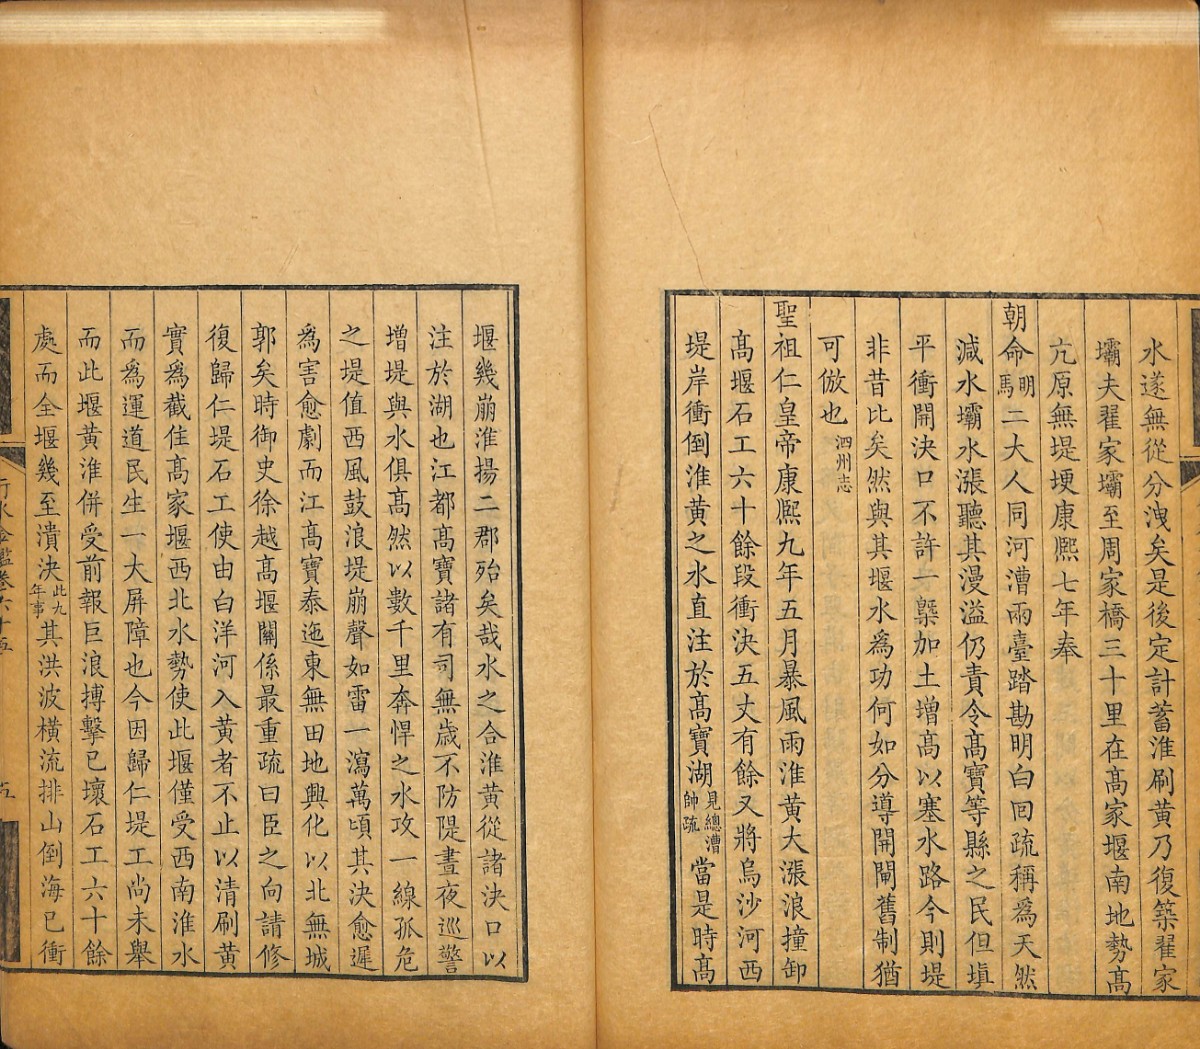 水遂無從分洩矣是後定計蓄淮刷黃乃復築翟家
壩夫翟家壩至周家橋三十里在髙家堰南地勢髙
亢原無堤埂康熙七年奉
朝命明馬二大人同河漕兩臺踏勘明白回疏稱為天然
減水壩水漲聽其漫溢仍責令髙寶等縣之民但塡
平衝開決口不許一槩加土增髙以塞水路今則堤
非昔比矣然與其堰水為功何如分導開閘舊制猶
可倣也泗州志
聖祖仁皇帝康熙九年五月暴風雨淮黃大漲浪撞卸
髙堰石工六十餘段衝決五丈有餘又將烏沙河西
堤岸衝倒淮黃之水直注於髙寶湖見總漕帥疏當是時髙
堰幾崩淮揚二郡殆矣哉水之合淮黃從諸決口以
注於湖也江都髙寶諸有司無歳不防隄晝夜巡警
增堤與水俱髙然以數千里奔悍之水攻一線孤危
之堤值西風鼓浪堤崩聲如雷一瀉萬頃其決愈遲
為害愈劇而江髙寶泰迤東無田地興化以北無城
郭矣時御史徐越髙堰關係最重疏曰臣之向請修
復歸仁堤石工使由白洋河入黃者不止以清刷黃
實為截住髙家堰西北水勢使此堰僅受西南淮水
而為運道民生一大屏障也今因歸仁堤工尚未舉
而此堰黃淮併受前報巨浪搏擊已壞石工六十餘
處而全堰幾至潰決此九年事其洪波橫流排山倒海已衝
行水金鑑卷六十五